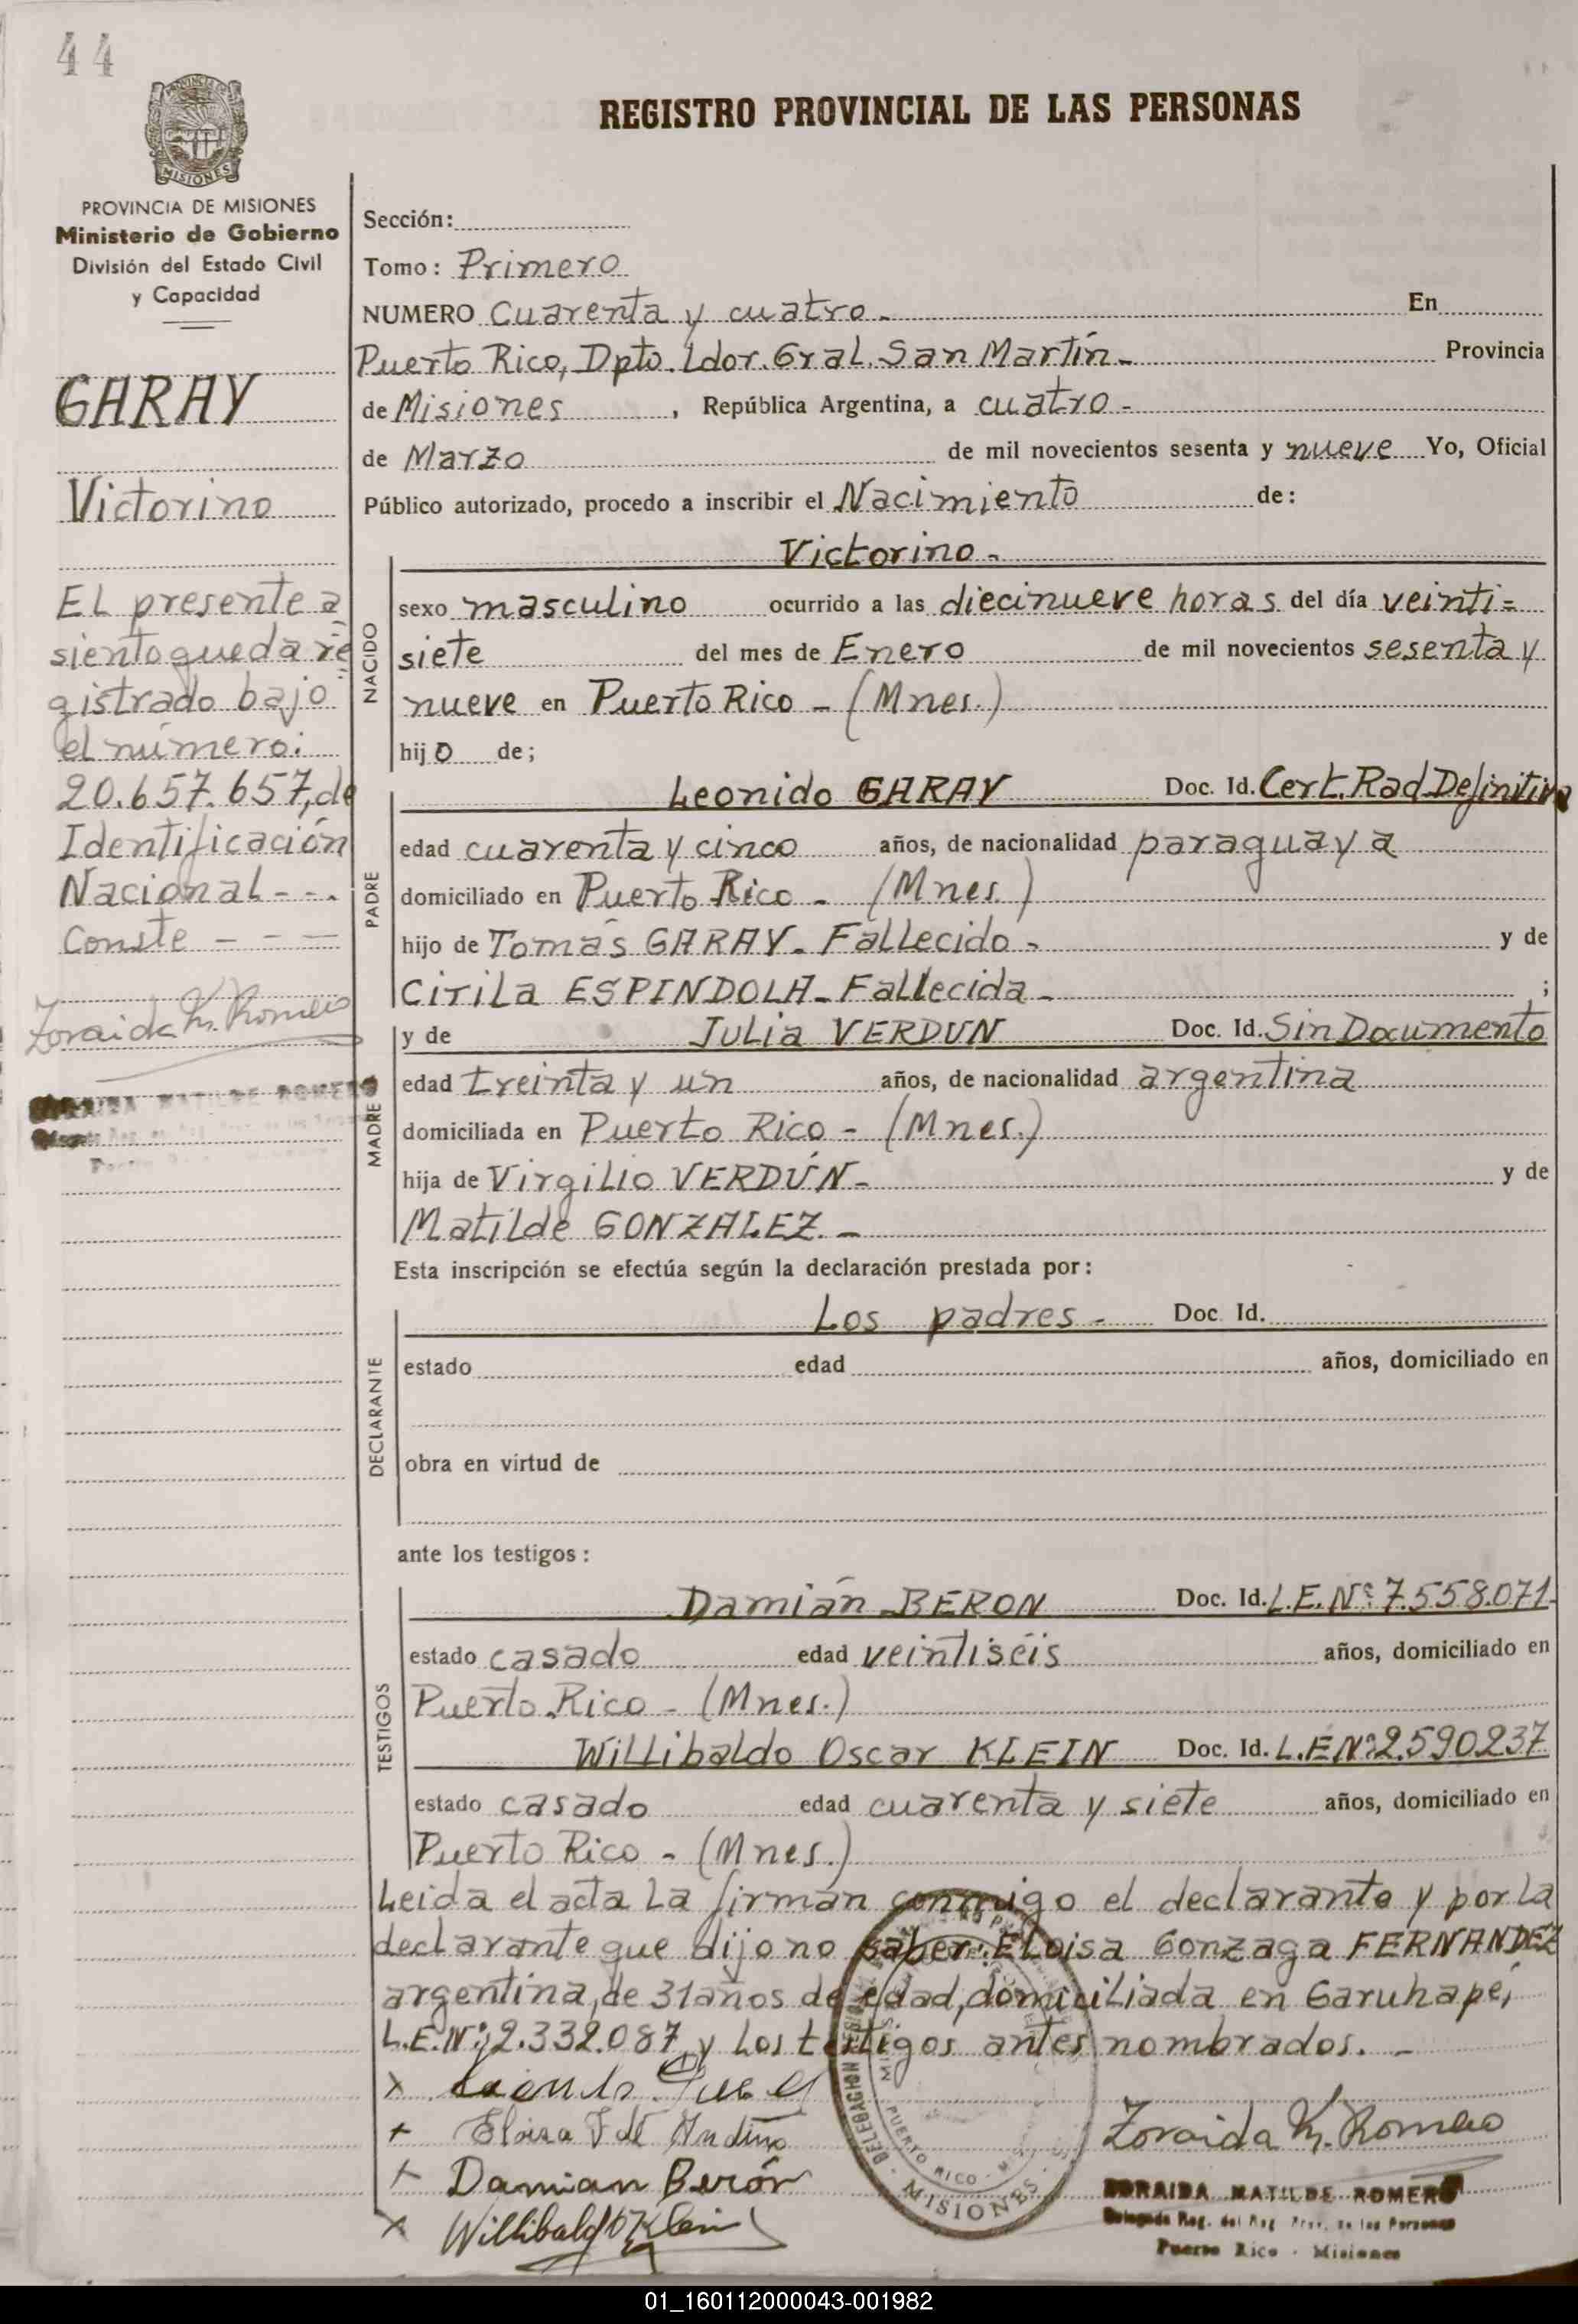 44
REGISTRO PROVINCIAL DE LAS PERSONAS
MISIONES
PROVINCIA DE MISIONES
Ministerio de Gobierno
División del Estado Civil
y Capacidad
GARAY
Victorino
El presente a
siento queda re
gistrado bajo
el número:
20.657.657, de
Identificación
Nacional - - .
Conste - - -
Zoraida M. Romero
ZORAIDA MATILDE ROMERO
Sección:
Tomo: Primero
NUMERO Cuarenta y cuatro - En
Puerto Rico, Dpto. Ldor. Gral. San Martín - Provincia
de Misiones , República Argentina, a cuatro -
de Marzo de mil novecientos sesenta y nueve Yo, Oficial
Público autorizado, procedo a inscribir el Nacimiento de:
Victorino -
NACIDO
sexo masculino ocurrido a las diecinueve horas del día veinti=
siete del mes de Enero de mil novecientos sesenta y
nueve en Puerto Rico - (Mnes.)
hijo de;
PADRE
Leonido GARAY Doc. Id. Cert. Rad Definitiva
edad cuarenta y cinco años, de nacionalidad paraguaya
domiciliado en Puerto Rico - (Mnes.)
hijo de Tomás GARAY - Fallecido - y de
Cirila ESPINDOLA - Fallecida - ;
MADRE
y de Julia VERDUN Doc. Id. Sin Documento
edad treinta y un años, de nacionalidad argentina
domiciliada en Puerto Rico - (Mnes.)
hija de Virgilio VERDÚN - y de
Matilde GONZALEZ. -
Esta inscripción se efectúa según la declaración prestada por:
DECLARANTE
Los padres - Doc. Id.
estado edad años, domiciliado en
obra en virtud de
ante los testigos:
TESTIGOS
Damián BERON Doc. Id. L.E.Nº 7.558.071-
estado casado edad veintiséis años, domiciliado en
Puerto Rico - (Mnes.)
Willibaldo Oscar KLEIN Doc. Id. L.E Nº 2.590237
estado casado edad cuarenta y siete años, domiciliado en
Puerto Rico - (Mnes.)
Leida el acta la firman conmigo el declarante y por la
declarante que dijo no saber: Eloisa Gonzaga FERNANDEZ
argentina, de 31 años de edad, domiciliada en Garuhapé,
L.E.Nº 2.332.087, y los testigos antes nombrados. -
X
+ Eloisa F de Andino
+ Damian Berón
X Willibaldo O Klein
DELEGACION PUERTO RICO - MISIONES
Zoraida M. Romero
ZORAIDA MATILDE ROMERO
Delegada Reg. del Reg. Prov. de las Personas
Puerto Rico - Misiones
01_160112000043-001982